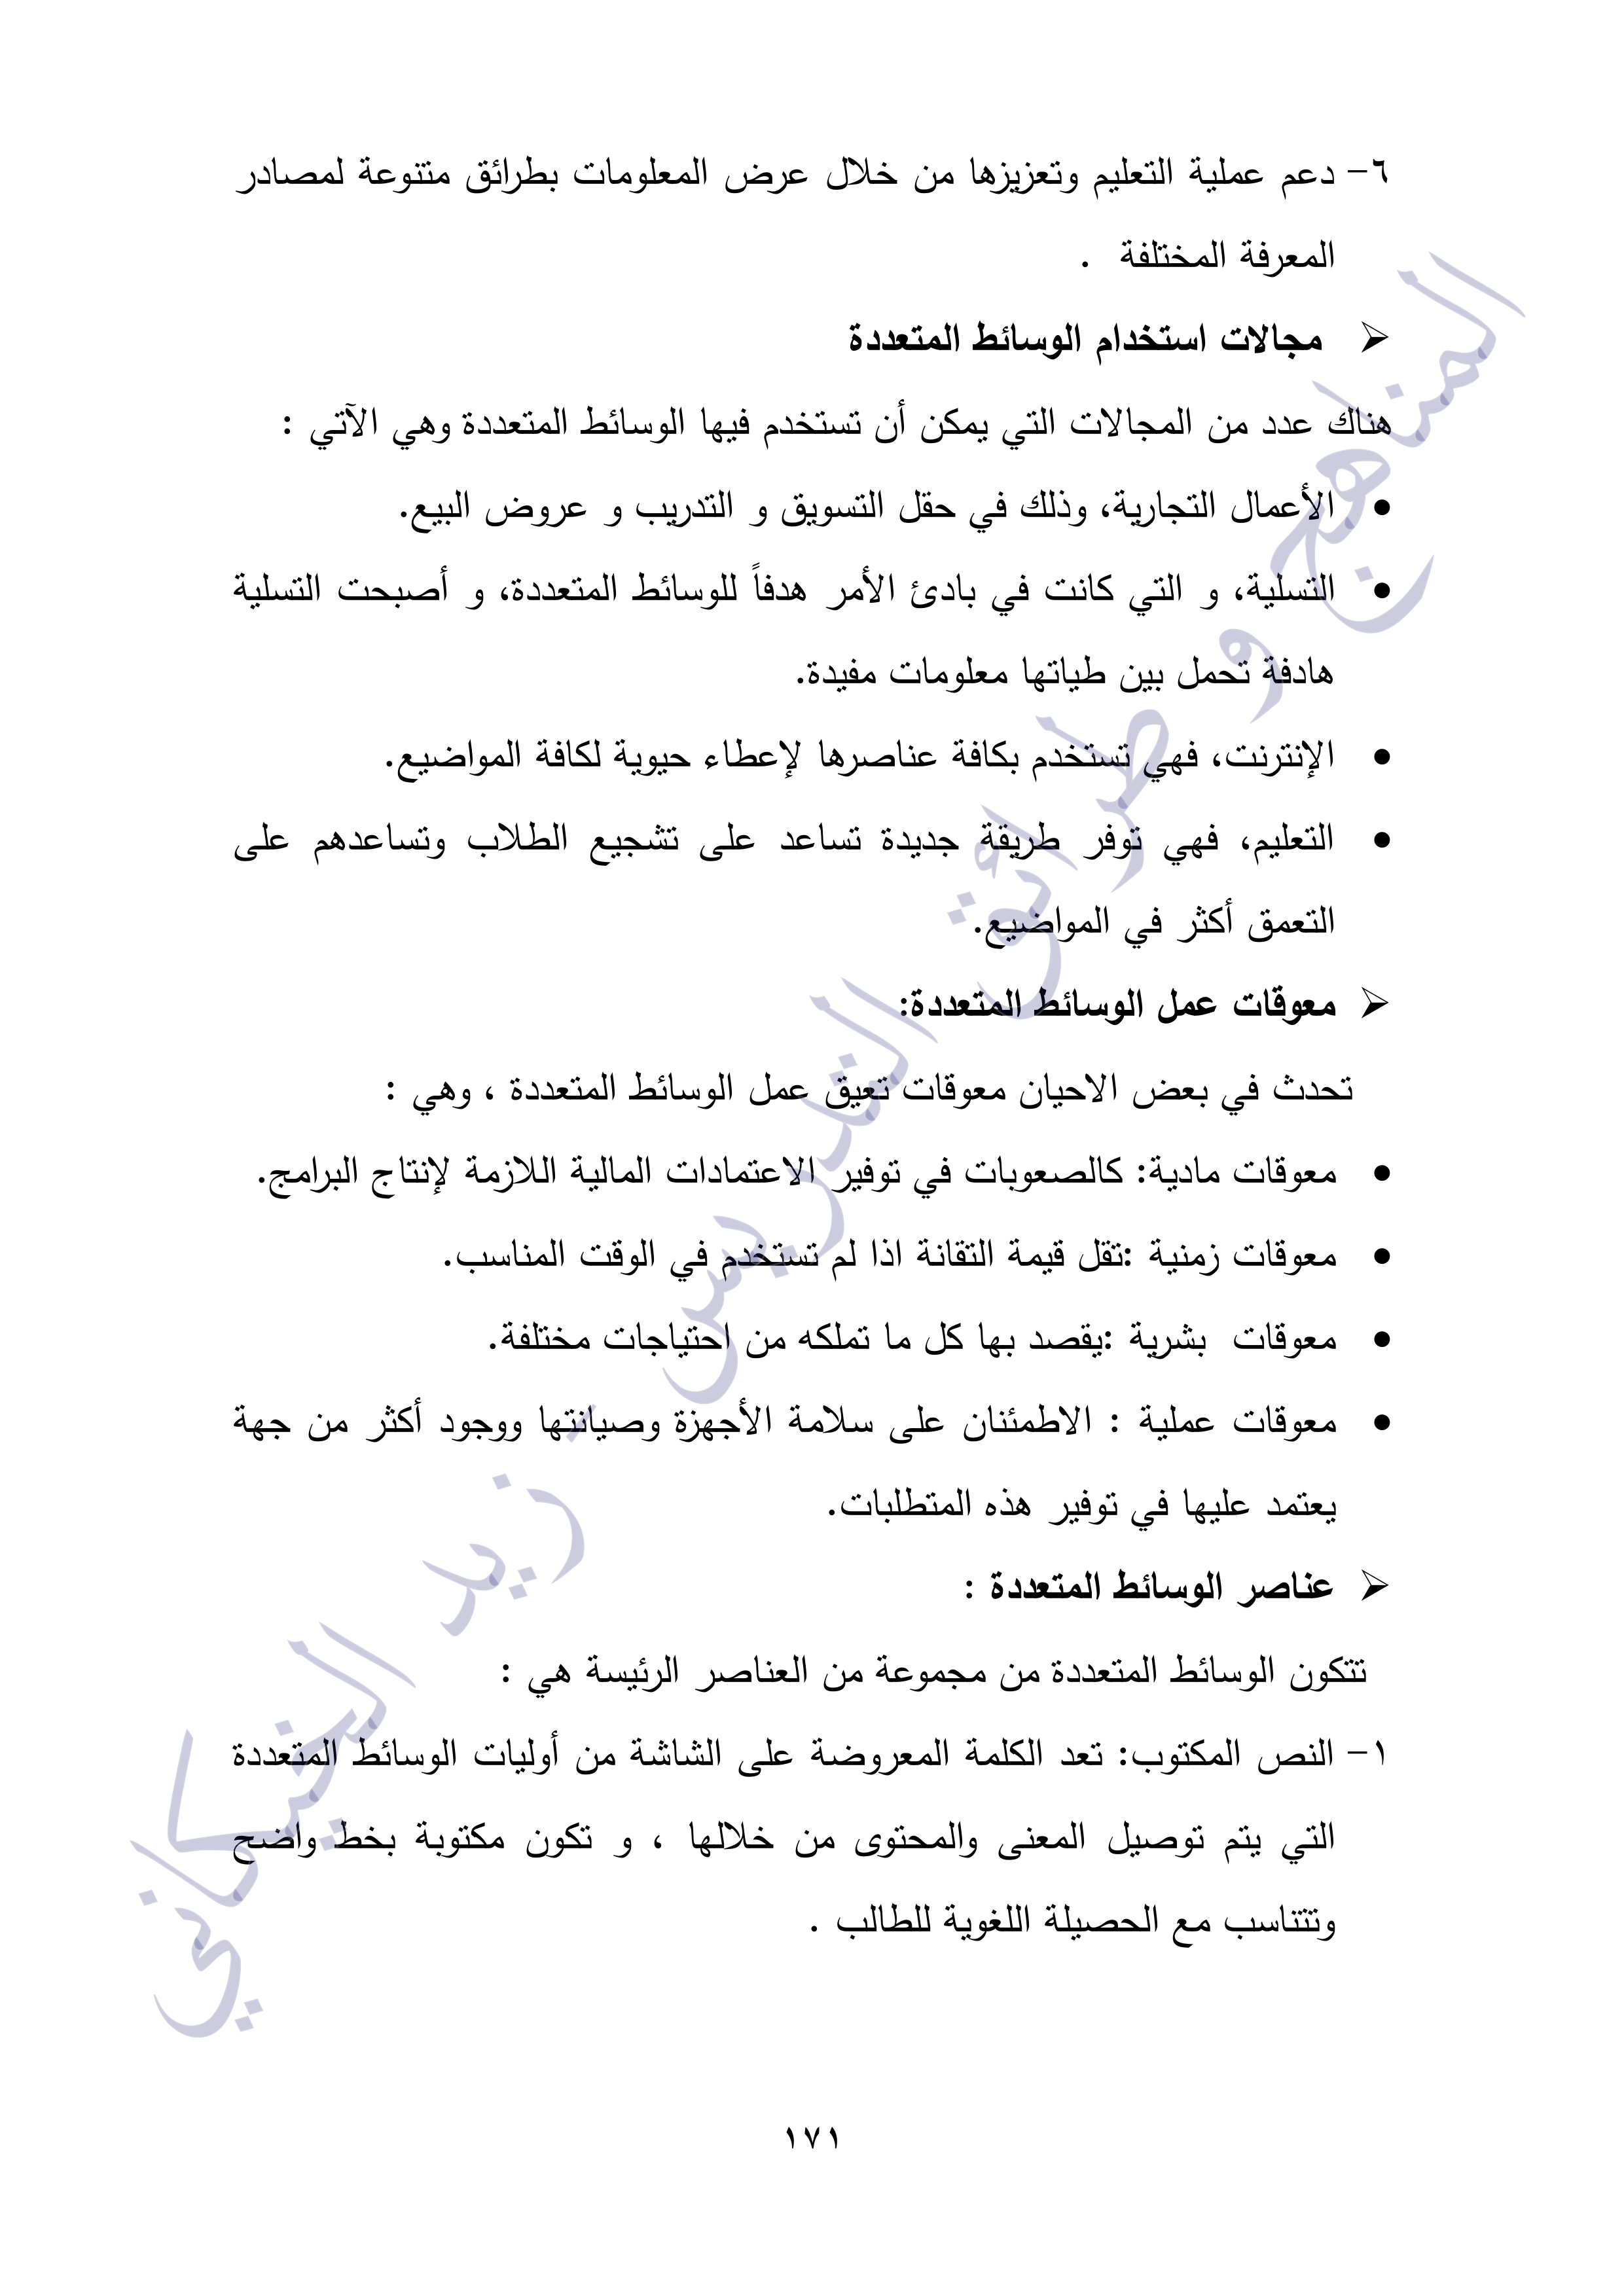 ٦- دعم عملية التعليم وتعزيزها من خلال عرض المعلومات بطرائق متنوعة لمصادر
المعرفة المختلفة .
➢ مجالات استخدام الوسائط المتعددة
هناك عدد من المجالات التي يمكن أن تستخدم فيها الوسائط المتعددة وهي الآتي :
• الأعمال التجارية، وذلك في حقل التسويق و التدريب و عروض البيع.
• التسلية، و التي كانت في بادئ الأمر هدفاً للوسائط المتعددة، و أصبحت التسلية
هادفة تحمل بين طياتها معلومات مفيدة.
• الإنترنت، فهي تستخدم بكافة عناصرها لإعطاء حيوية لكافة المواضيع.
• التعليم، فهي توفر طريقة جديدة تساعد على تشجيع الطلاب وتساعدهم على
التعمق أكثر في المواضيع.
➢ معوقات عمل الوسائط المتعددة:
تحدث في بعض الاحيان معوقات تعيق عمل الوسائط المتعددة ، وهي :
• معوقات مادية: كالصعوبات في توفير الاعتمادات المالية اللازمة لإنتاج البرامج.
• معوقات زمنية :تقل قيمة التقانة اذا لم تستخدم في الوقت المناسب.
• معوقات بشرية :يقصد بها كل ما تملكه من احتياجات مختلفة.
• معوقات عملية : الاطمئنان على سلامة الأجهزة وصيانتها ووجود أكثر من جهة
يعتمد عليها في توفير هذه المتطلبات.
➢ عناصر الوسائط المتعددة :
تتكون الوسائط المتعددة من مجموعة من العناصر الرئيسة هي :
١- النص المكتوب: تعد الكلمة المعروضة على الشاشة من أوليات الوسائط المتعددة
التي يتم توصيل المعنى والمحتوى من خلالها ، و تكون مكتوبة بخط واضح
وتتناسب مع الحصيلة اللغوية للطالب .
١٧١
المناهج و طرائق التدريس - زيد الخيكاني